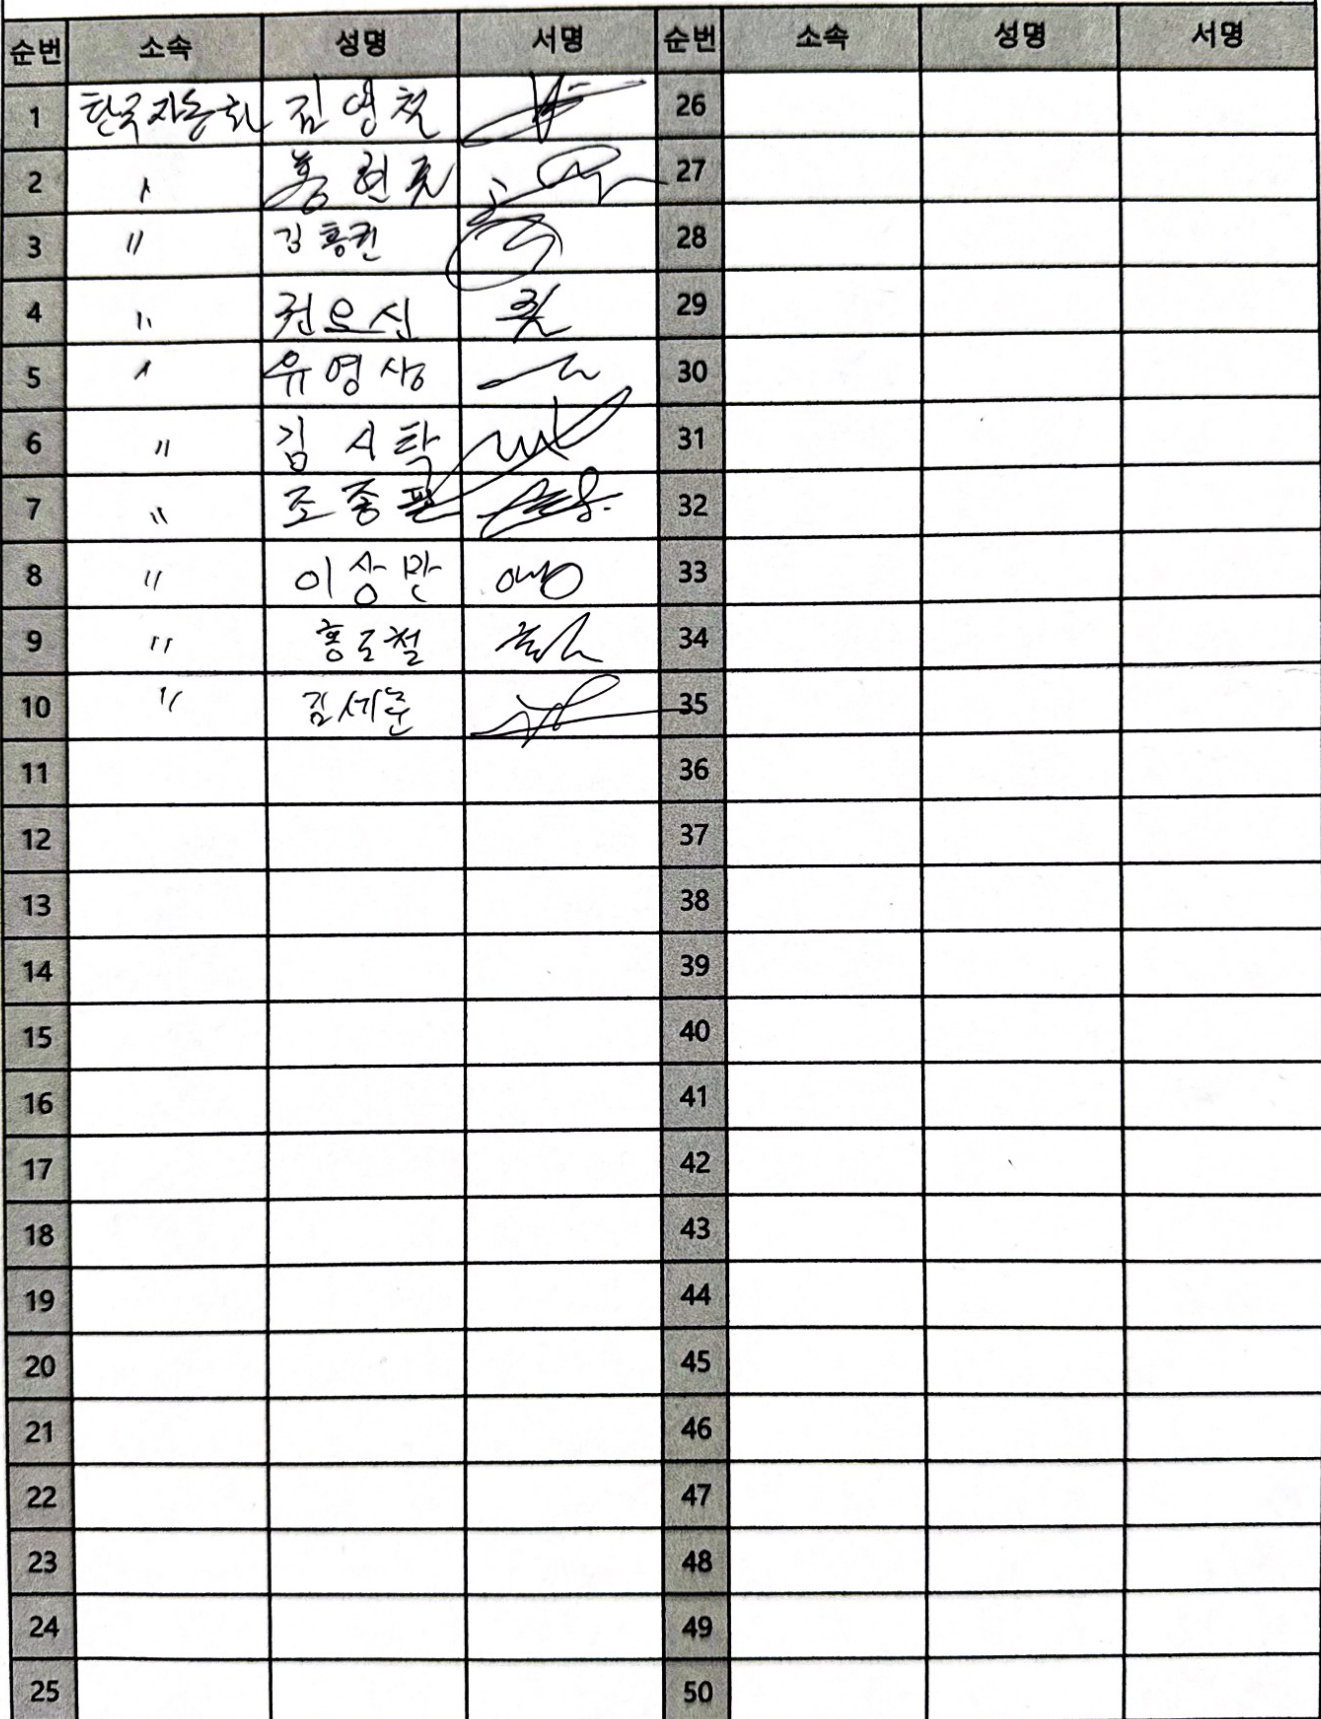 순번 소속 성명 서명 순번 소속 성명 서명
1 한국자동화 김영철 26
2 〃 홍현표 27
3 〃 김홍권 28
4 〃 권오신 29
5 〃 유영상 30
6 〃 김시탁 31
7 〃 조종필 32
8 〃 이상만 33
9 〃 홍도철 34
10 〃 김세훈 35
11 36
12 37
13 38
14 39
15 40
16 41
17 42
18 43
19 44
20 45
21 46
22 47
23 48
24 49
25 50